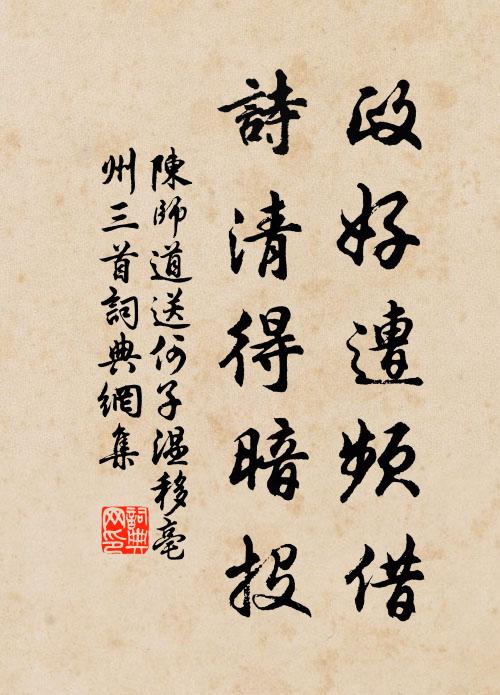 政好遭頻借
詩清得暗投
陳師道送何子溫移亳
州三首詞典網集
詞典
网印